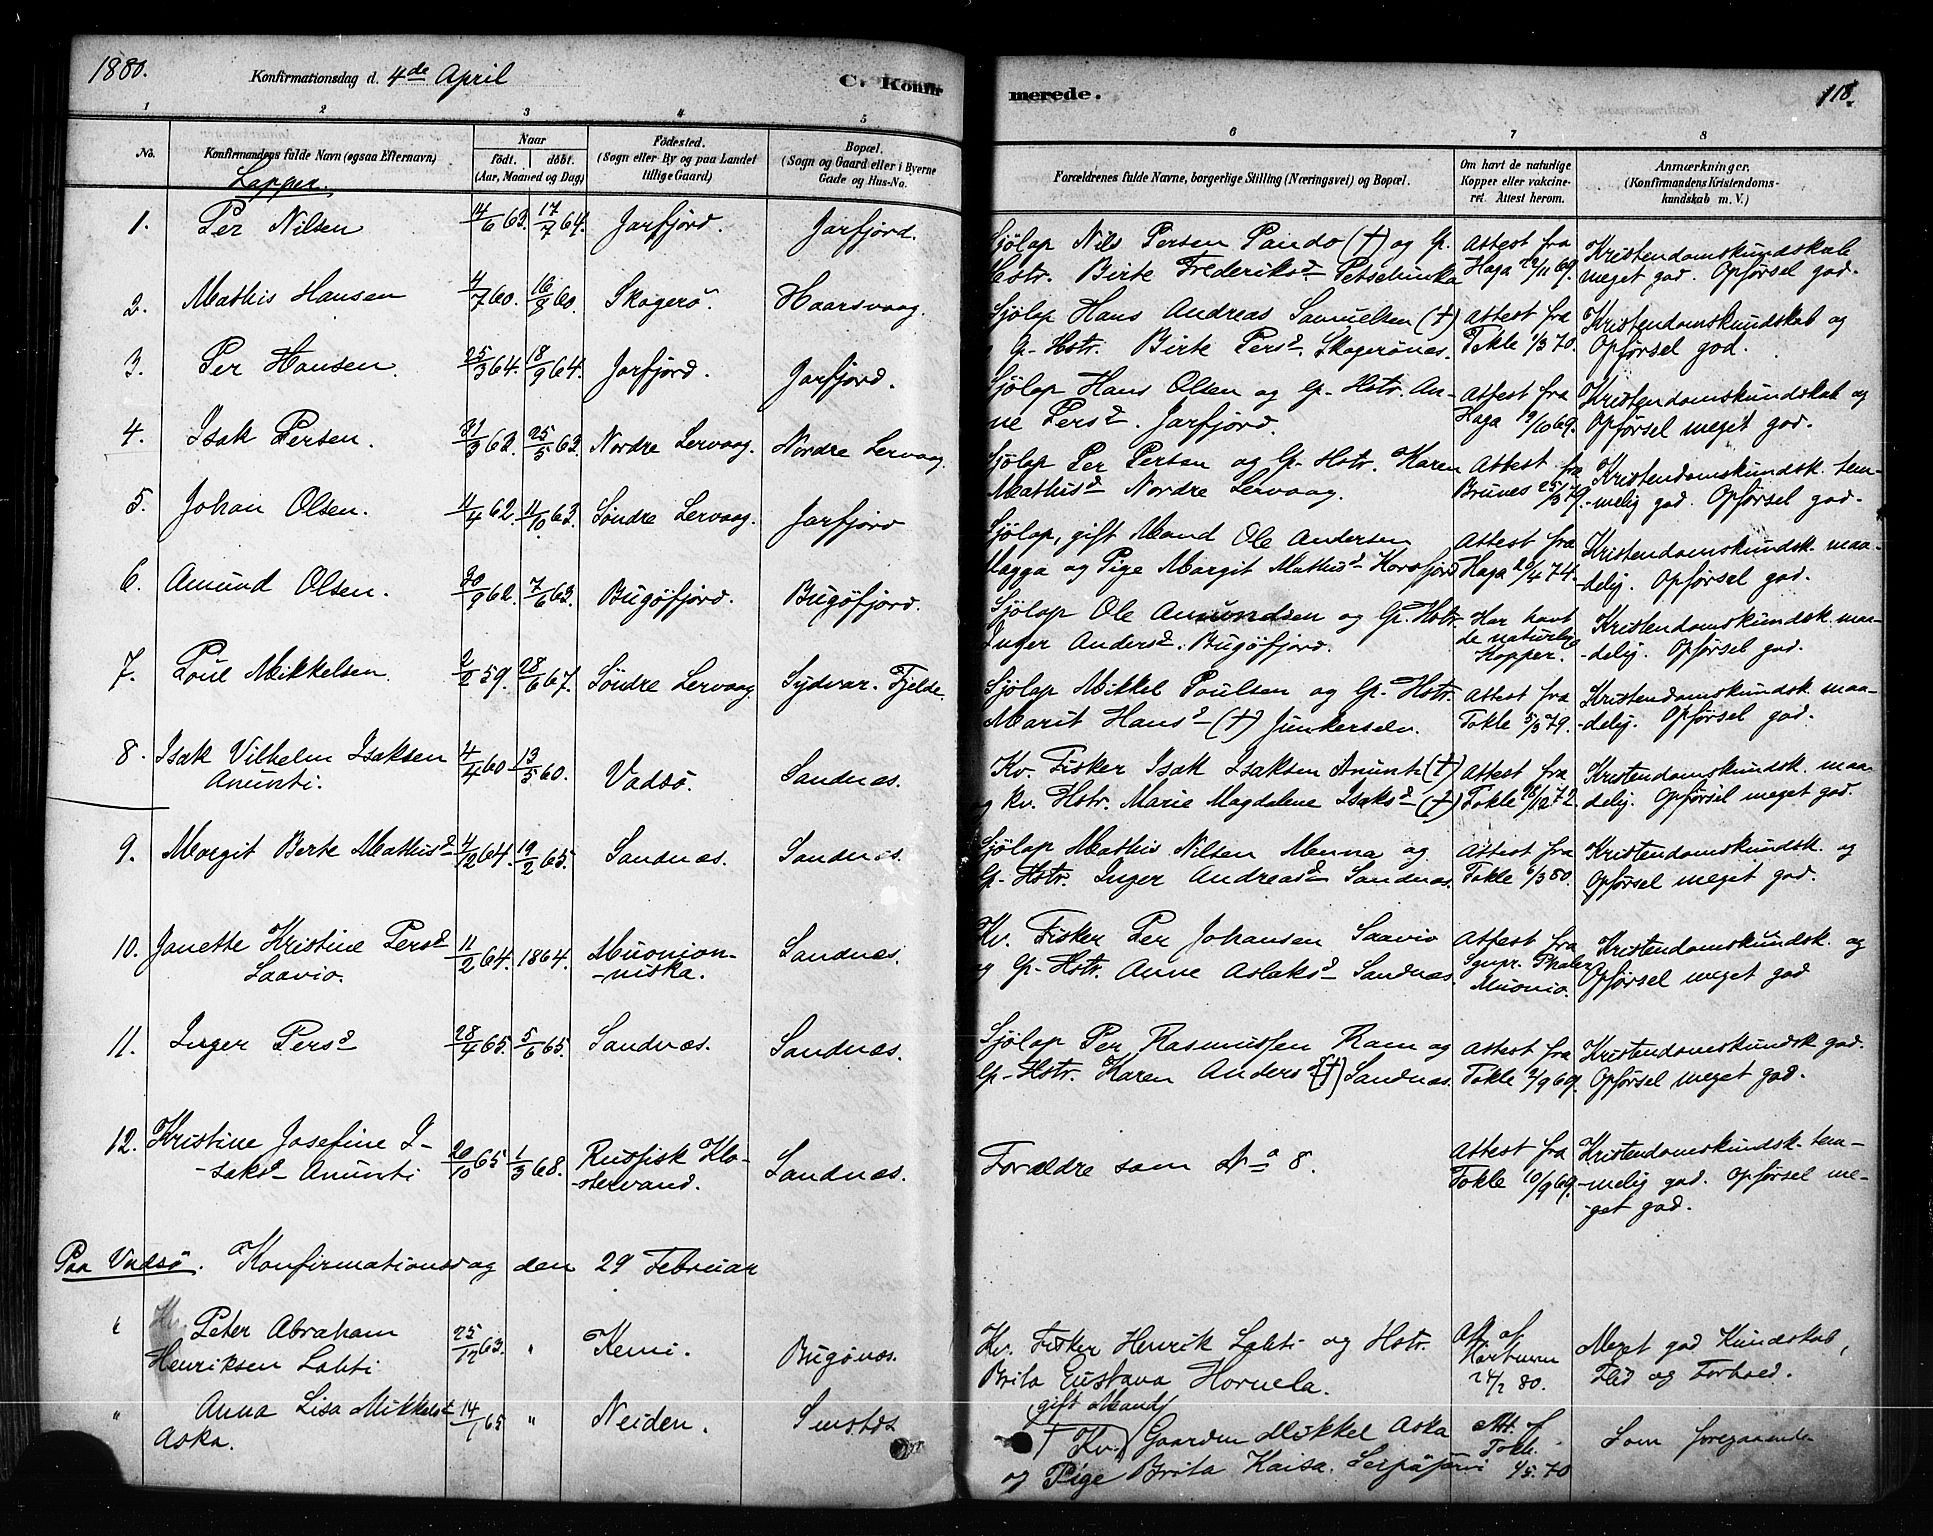 1880.
Konfirmationsdag d. 4de April
C. Konfir
merede.
118.
1 2 3 4 5
6 7 8
No.
Konfirmandens fulde Navn (ogsaa Efternavn)
Naar
født. døbt.
(Aar, Maaned og Dag)
Fødested.
(Sogn eller By og paa Landet
tillige Gaard)
Bopæl.
(Sogn og Gaard eller i Byerne
Gade og Hus-No.
Forældrenes fulde Navne, borgerlige Stilling (Næringsvei) og Bopæl.
Om havt de naturlige
Kopper eller vakcine-
ret. Attest herom.
Anmærkninger.
(Konfirmandens Kristendoms-
kundskab m. V.)
Lapper.
1. Per Nilsen 14/6 63. 17/7 64. Jarfjord. Jarfjord.
Sjölap Nils Persen Pando (†) og Gp. Attest fra Kristendomskundskab
Hstr. Birte Frederiksd Petschinka Haga 22/11 69. meget god. Opførsel god.
2. Mathis Hansen 4/7 60. 16/8 60. Skogerö. Haarsvaag.
Sjölap Hans Andreas Samuelsen (†) Attest fra Kristendomskundskab og
Gp. Hstr. Birte Persd. Skogerönes. Tokle 1/3 70. Opførsel god.
3. Per Hansen. 25/3 64. 18/9 64. Jarfjord. Jarfjord.
Sjölap Hans Olsen og Gp. Hstr. An- Attest fra Kristendomskundskab og
ne Persd. Jarfjord. Haga 19/10 69. Opførsel meget god.
4. Isak Persen. 31/3 62. 25/5 63. Nordre Lervaag. Nordre Lervaag.
Sjölap Per Persen og Gp. Hstr. Karen Attest fra Kristendomskundsk. tem-
Mathisd Nordre Lervaag. Brunes 25/3 79. -melig god. Opførsel god.
5. Johan Olsen. 11/4 62. 11/10 63. Söndre Lervaag. Jarfjord
Sjölap, gift Mand Ole Andersen Attest fra Kristendomskundsk. maa-
Magga og Pige Margit Mathisd Korsfjord Haga 26/4 74. -delig. Opførsel god.
6. Amund Olsen. 30/9 62. 7/6 63. Bugöfjord. Bugöfjord.
Sjölap Ole Amundsen og Gp. Hstr. Har havt Kristendomskundsk. maa-
Inger Andersd. Bugöfjord. de naturlige Kopper. -delig. Opførsel god.
7. Poul Mikkelsen. 2/2 59. 28/6 67. Söndre Lervaag Sydvar. Fjelde.
Sjölap Mikkel Poulsen og Gp. Hstr. Attest fra Kristendomskundsk. maa-
Marit Hansd (†) Junkerselv. Tokle 5/3 79. -delig. Opførsel god.
8. Isak Vilhelm Isaksen 4/4 60. 13/5 60. Vadsö. Sandnæs.
Anunti.
Kv. Fisker Isak Isaksen Anunti (†) Attest fra Kristendomskundsk. maa-
og kv. Hstr. Marie Magdalene Isaksd (†) Tokle 18/12 72. delig. Opførsel meget god.
9. Margit Berte Mathisd 4/12 64. 19/2 65. Sandnæs. Sandnæs.
Sjölap Mathis Nilsen Menna og Attest fra Kristendomskundsk. og
Gp. Hstr. Inger Andreasd Sandnæs. Tokle 6/3 80. Opførsel meget god.
10. Janette Kristine Persd 11/2 64. 1864. Muonion- Sandnæs.
Saavio. -niska.
Kv. Fisker Per Johansen Saavio Attest fra Kristendomskundsk. og
og Gp. Hstr. Anne Aslaksd Sandnæs. Muonio. Opførsel meget god
11. Inger Persd 28/4 65. 5/6 65. Sandnæs. Sandnæs.
Sjölap Per Rasmussen Ram og Attest fra Kristendomskundsk god.
Gp. Hstr. Karen Andersd (†) Sandnæs. Tokle 2/9 69. Opførsel meget god.
12. Kristine Josefine I- 20/10 65. 1/3 68. Russisk Klo- Sandnæs.
-saksd Anunti -stervand.
Forældre som No 8. Attest fra Kristendomskundsk. tem-
Tokle 10/9 69. -melig god. Opførsel me-
-get god.
Paa Vadsö. Konfirmationsdag den 29 Februar
" Kv. Peter Abraham 25/12 63. " Kemi. Bugönæs.
Henriksen Lahti
Kv. Fisker Henrik Lahti og Hstr. Att. af Meget god Kundskab,
Brita Gustava Hornela. 24/2 80. Flid og Forhold.
" Anna Lisa Mikkelsd 14/1 65 " Neiden.
Aska.
(gift Mand)
† Kv. Gaardm Mikkel Aska Att. af Som foregaaende
og Pige Brita Kaisa Tokle 4/5. 70